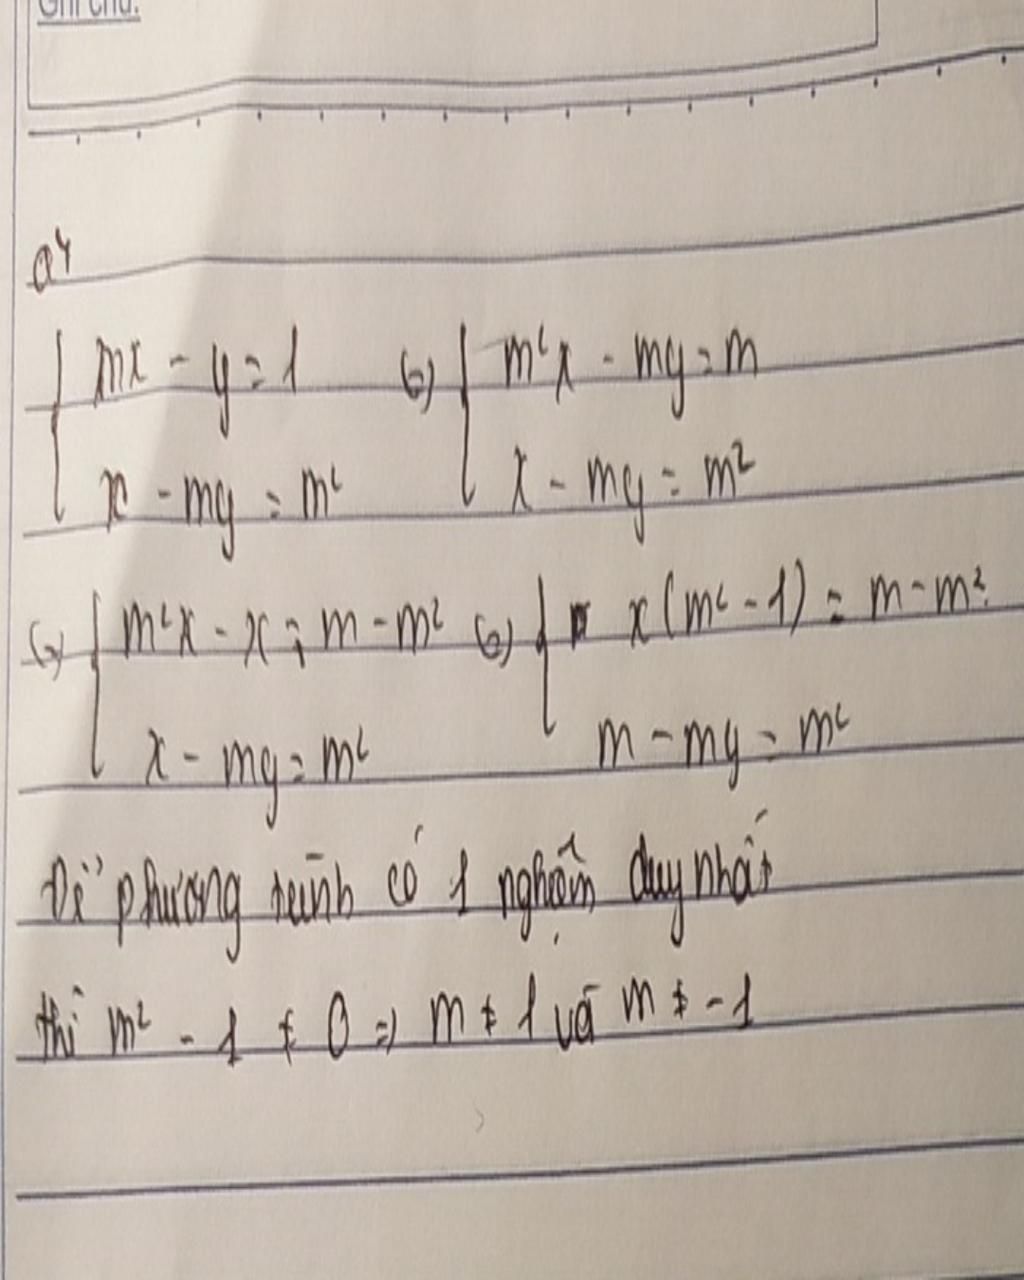 Ghi chú:
a4
mx - y = 1 (=) m²x - my = m
x - my = m² x - my = m²
(=) m²x - x = m - m² (=) x(m² - 1) = m - m²
x - my = m² m - my = m²
Để phương trình có 1 nghiệm duy nhất
thì m² - 1 ≠ 0 => m ≠ 1 và m ≠ -1